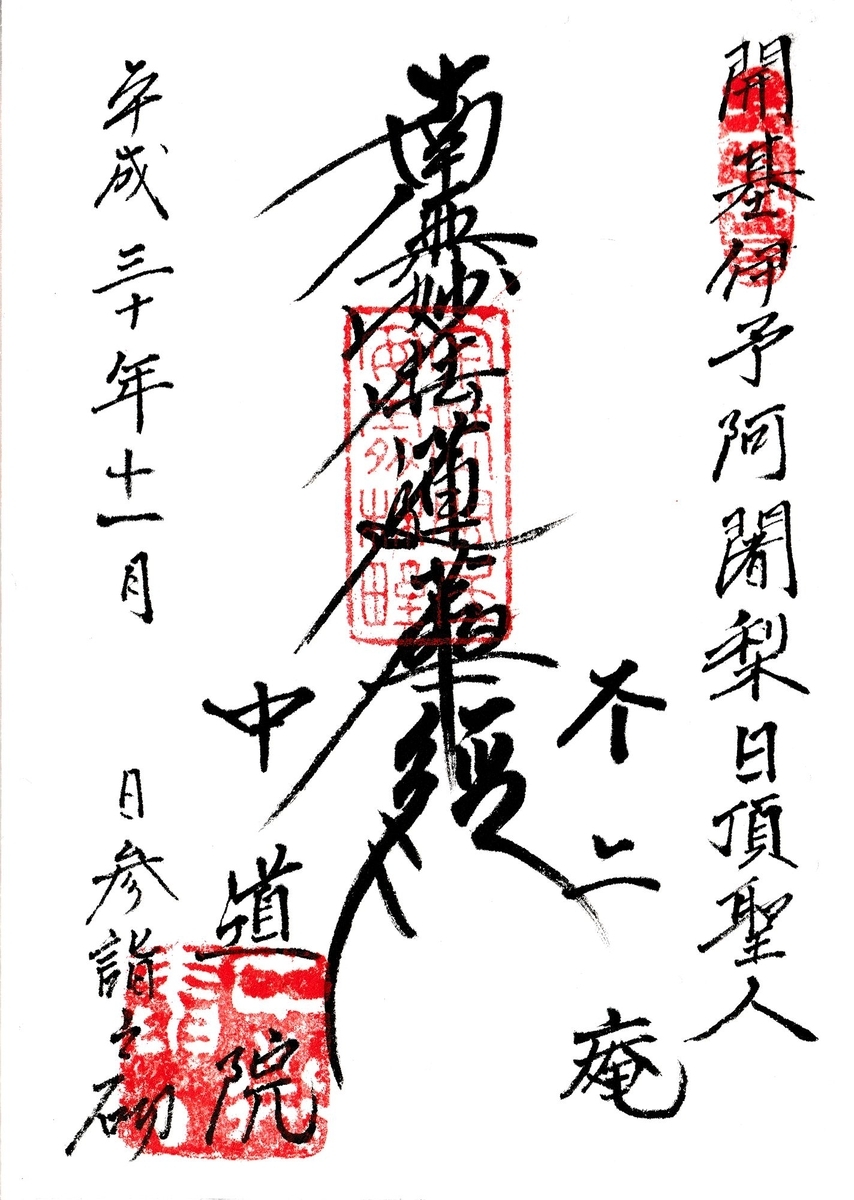 開基伊予阿闍梨日頂聖人
不二庵
南無妙法蓮華經
中道院
平成三十年十一月 日参詣之砌